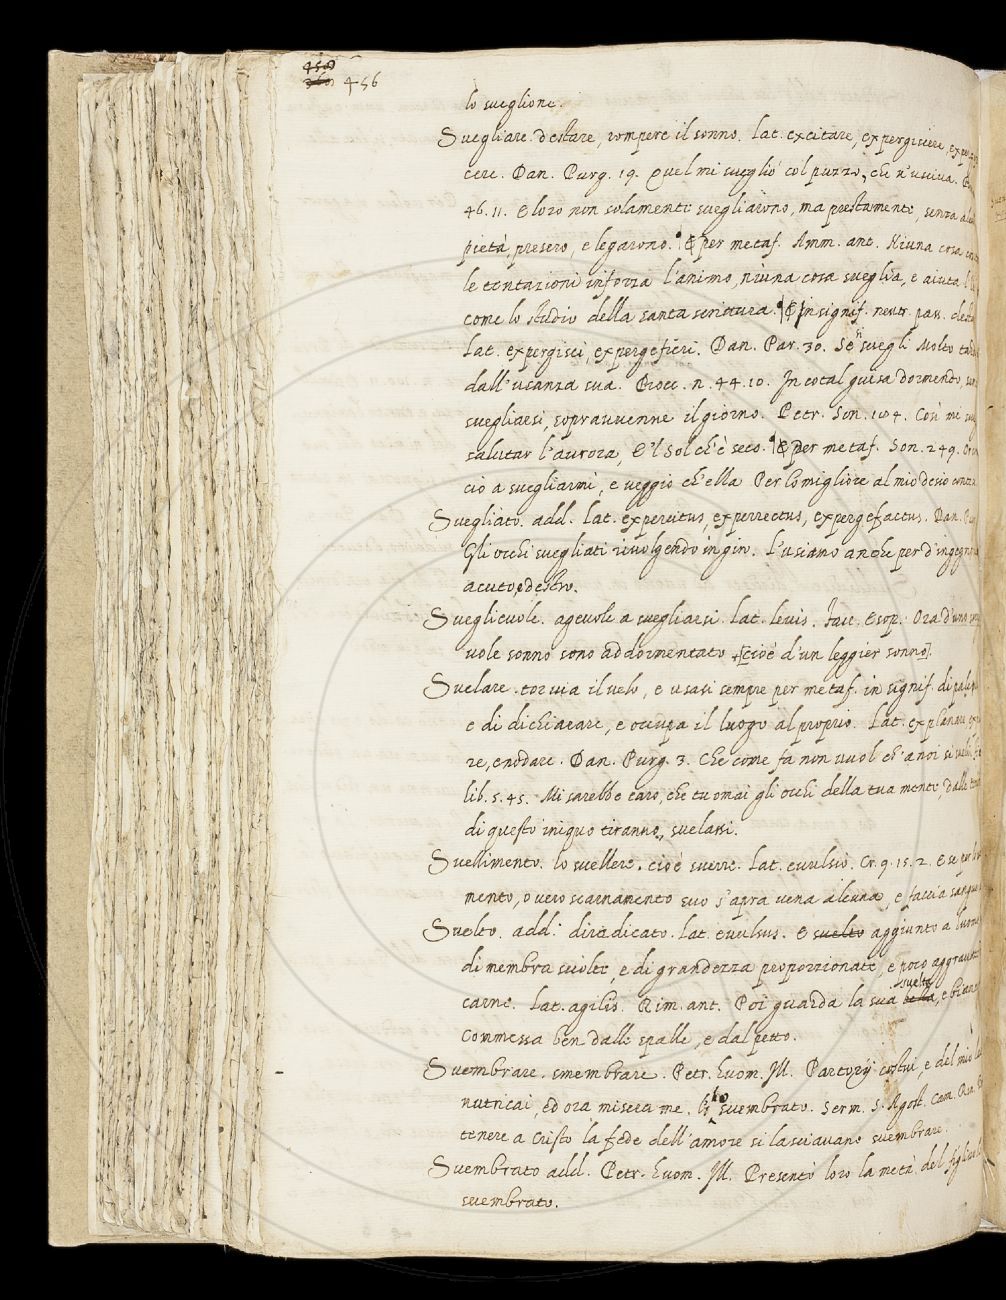 456
lo sueglione.
Suegliare. destare, rompere il sonno. Lat. excitare, expergiscere,
cere. Dan. Purg. 19. Quel mi svegliò col puzzo, che n'usciua.
46. 11. E loro non solamente suegliarono, ma prestamente, senza
pietà, presero, e legarono. E per metaf. Amm. ant. Niuna cosa
le tentazioni inforza l'animo, niuna cosa sueglia, e aiuta
come lo studio della santa scrittura. E in signif. neutr. pass.
Lat. expergisci, expergefieri. Dan. Par. 30. Se n suegli Molto
dall'usanza sua. Bocc. n. 44. 10. In cotal guisa dormendo,
suegliarsi, soprauuenne il giorno. Petr. Son. 184. Così mi
salutar l'aurora, E'l Sol ch'è seco. E per metaf. Son. 249.
cio a suegliarmi, e ueggio ch'ella Per lo migliore al mio desio
Suegliato. add. Lat. expercitus, experrectus, expergefactus. Dan.
Gli occhi suegliati riuolgendo in giro. L'usiamo anche per d'ingegno
acuto, e destro.
Suegliеuole. ageuole a suegliarsi. Lat. leuis. Fau. Esop. Ora d'uno
uole sonno sono addormentato [cioè d'un leggier sonno].
Suelare. tor uia il uelo, e usasi sempre per metaf. in signif. di
e di dichiarare, e occupa il luogo al proprio. Lat. explanare
re, enodare. Dan. Purg. 3. Che come fa non uuol ch'a noi si
lib. 5. 45. Mi sarebbe caro, che tu omai gli occhi della tua mente, dalle
di questo iniquo tiranno, suelassi.
Suellimento. lo suellere. cioè suerre. Lat. euulsio. Cr. 9. 15. 2. E se per
mento, o uero scarnamento suo s'apra uena alcuna, e faccia
Suelto. add. diradicato. Lat. euulsus. E suelto aggiunto a
di membra sciolte, e di grandezza proporzionate, e poco
carne. Lat. agilis. Rim. ant. Poi guarda la sua suelta, e
Commessa ben dalle spalle, e dal petto.
Suembrare. smembrare. Petr. huom. Ill. Partorÿ costui, e del mio
nutricai, ed ora misera me, lo suembrato. Serm. S. Agost.
tenere a Cristo la fede dell'amore si lasciauano suembrare.
Suembrato add. Petr. huom. Ill. Presentò loro la metà del
suembrato.